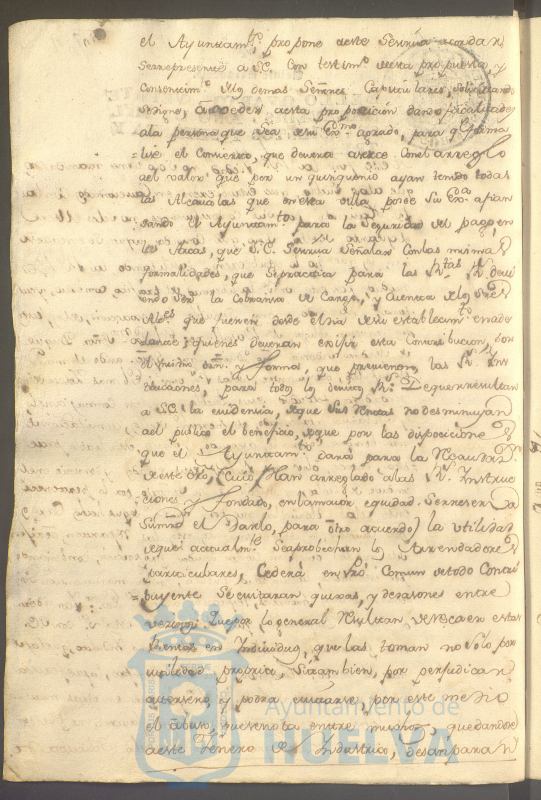 el Ayuntam.to propone a este Serviria acordar
Se represente a S.E. Con testim.o de esta propuesta, y
Consentim.to de los demas Señores Capitulares, solicitando
se digne, acceder a esta proposicion dando facultades
a la persona que sea de su Ex.mo agrado, para q.e forma
lise el Convenio, que devera con el arreglo
del valor que por un quinquenio ayan tenido todas
las Alcavalas que en esta villa posee Su Ex.a afian
sando el Ayuntam.to para la Seguridad del pago, en
las Arcas, que S.E. Señalar Con las mismas
formalidades, que se practica para las R.tas
endo ser la Cobransa de Cargo, y Cuenta de los Sres
Alc.es que fuesen desde el dia de su establecim.to en ade
lante; quienes deveran exijir esta Contribucion, con
el mismo orn. y forma, que previenen las R.s Ins
trucciones, para todos y demas De que resultan
a S.E. la evidencia, de que Sus Rentas no desminuyan
al publico el beneficio, de que por las disposiciones
que el Ayuntam.to dara para la Recaudac.n
de este, Cuio Plan arreglado a las R.s Instruc
ciones y fondado, en la maior equidad Se reserva
el Darlo, para otro acuerdo) la utilidad
de que actualm.te Se aprobechan los Arrendadores
particulares, Cederá en pró Comun de todo Contri
buyente Se evitaran quexas, y desasones entre
vezinos Que por lo general Resultan, de Recaer estas
Rentas en Individuos, que las toman no Solo por
utilidad propria, Sitambien, por perjudicar
a terseros y podra evitarse por este medio
el abuso, que se nota entre muchos, que dandose
a este Genero de Industria, desamparan
Ayuntamiento de
HUELVA